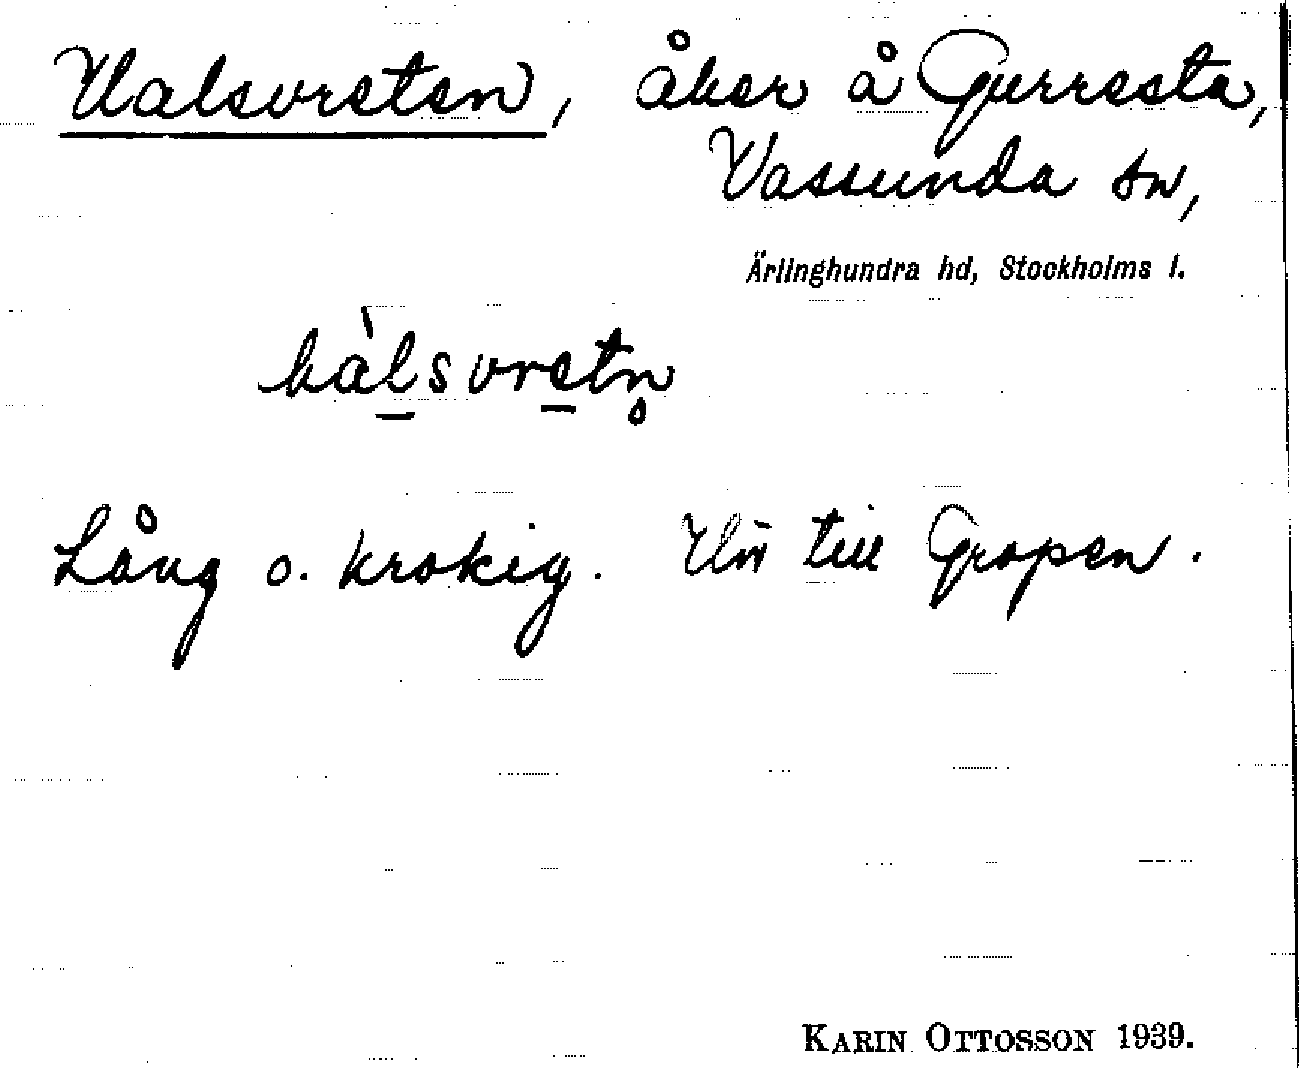 Halsvreten, åker å Gurresta,
Vassunda sn,
Ärlinghundra hd, Stockholms l.
hàl̲svre̲tn̥
Lång o. krokig. Hör till Gropen.
KARIN OTTOSSON 1939.